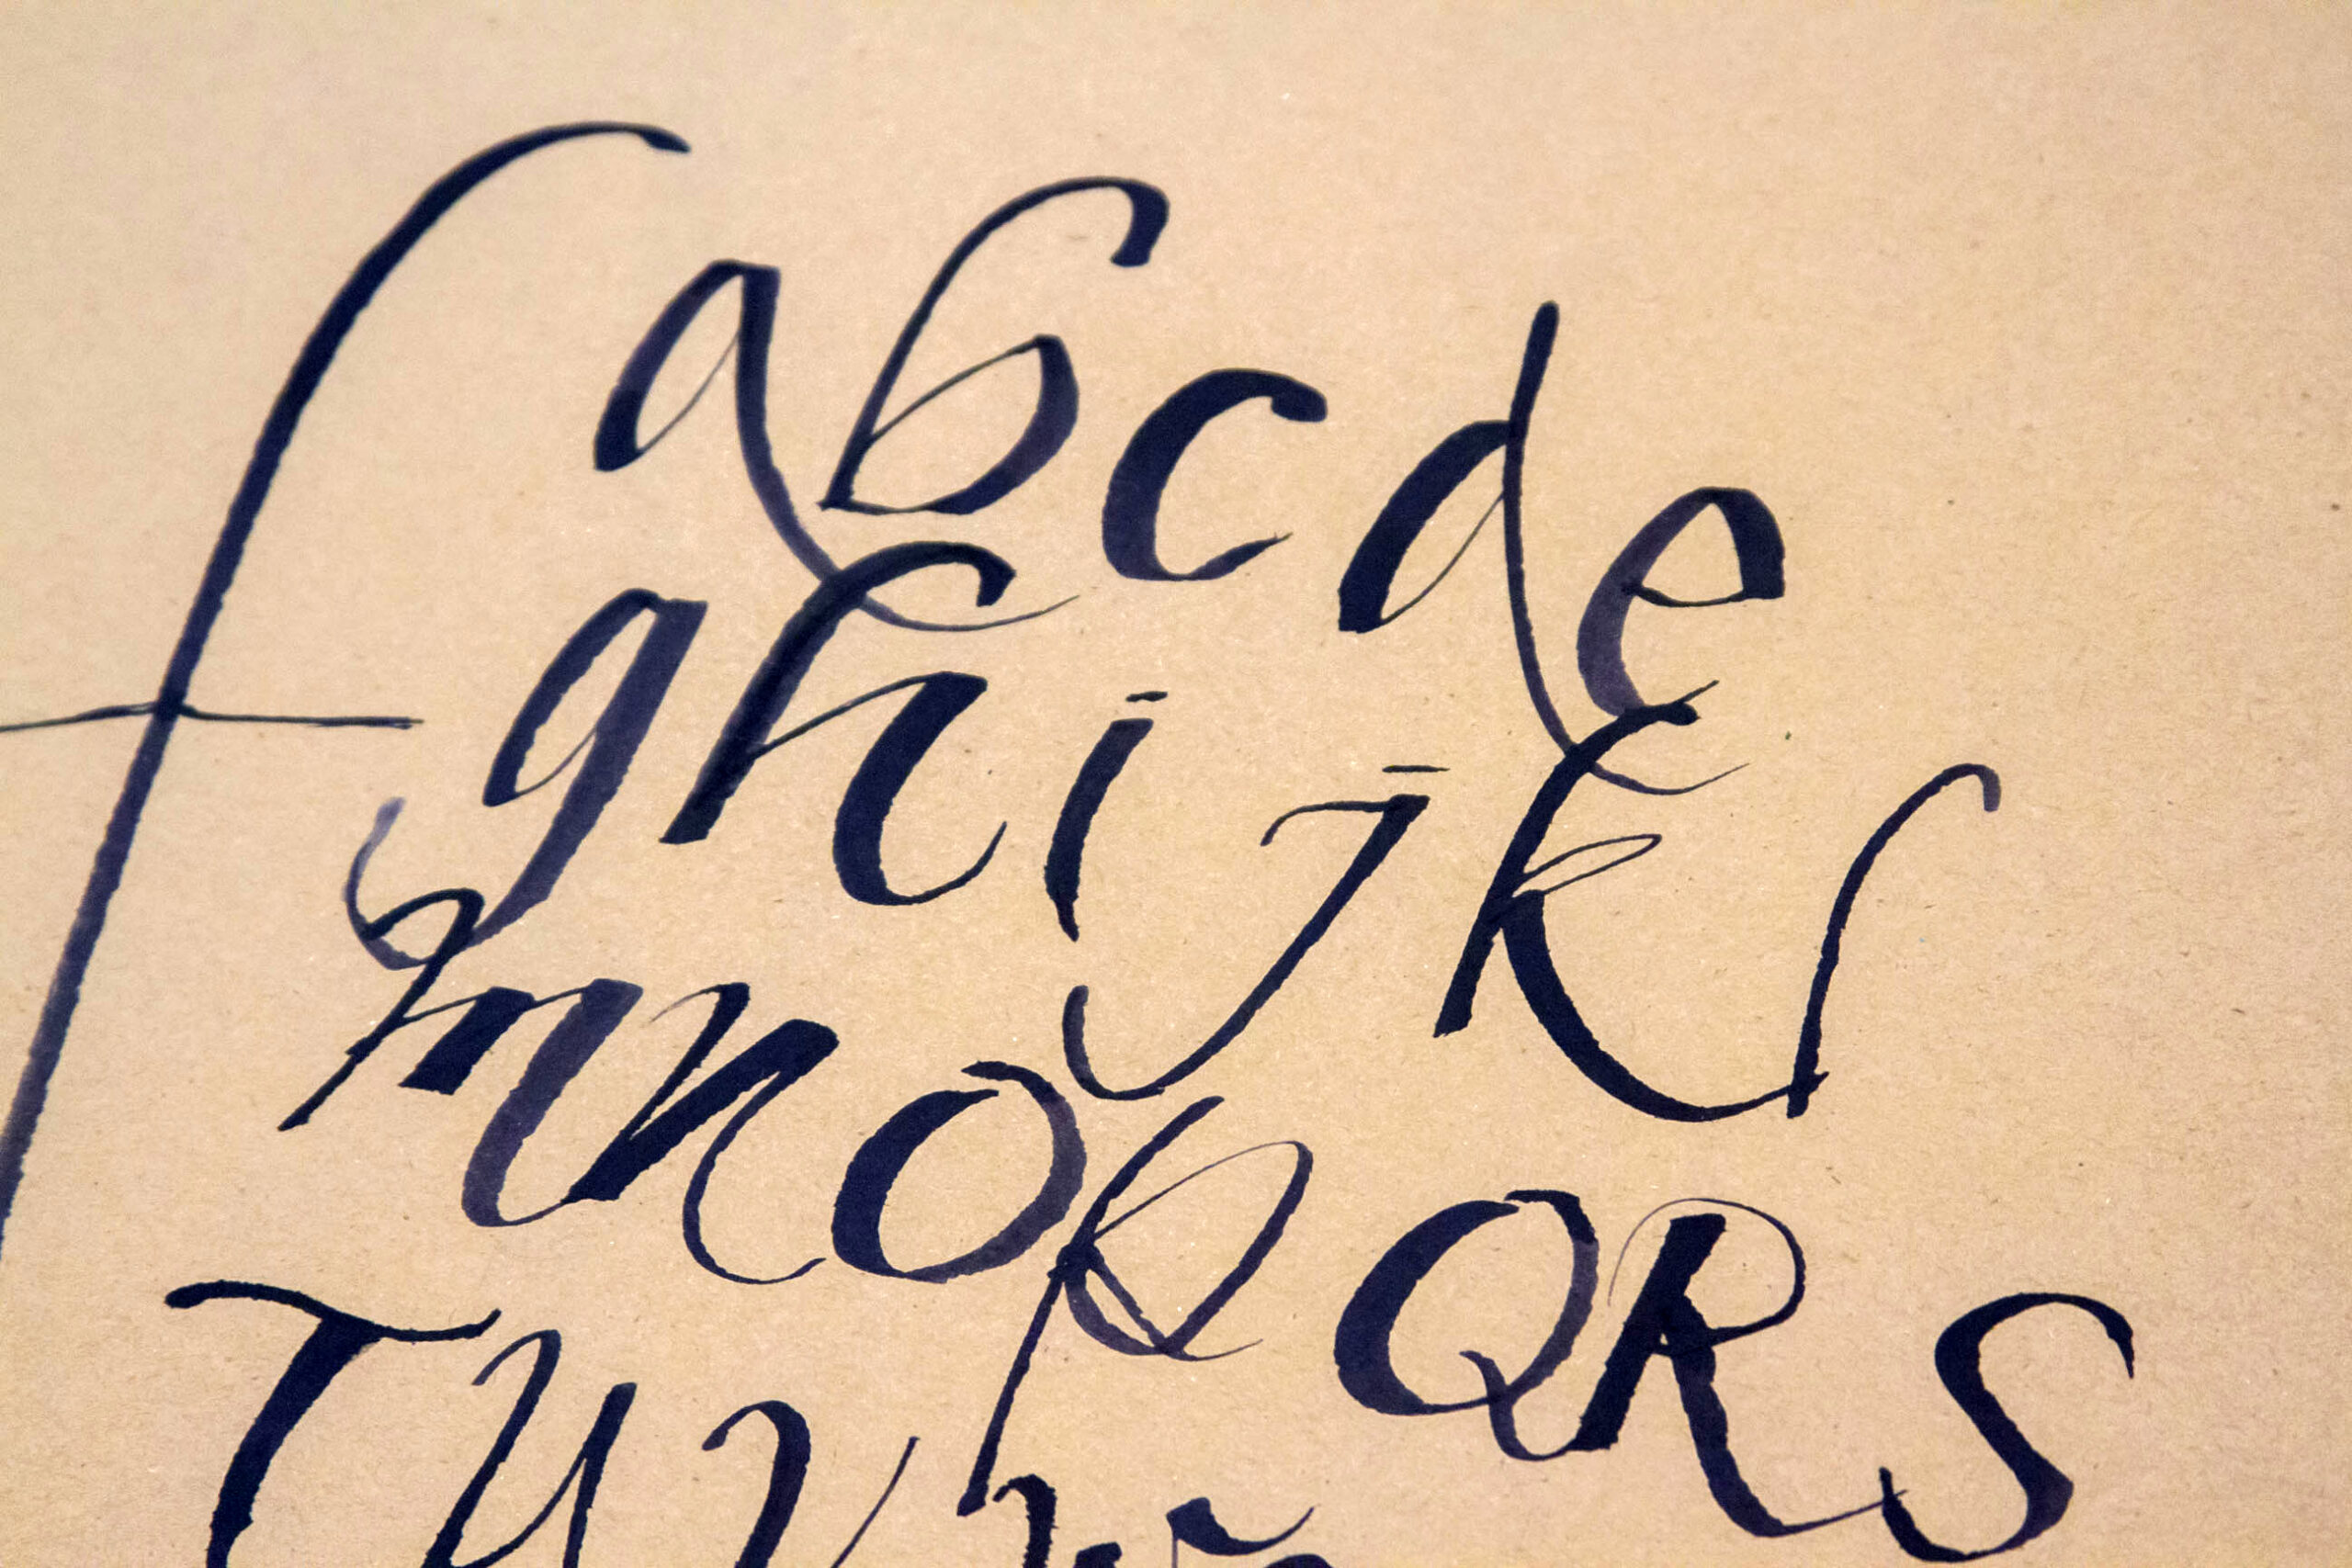 abcde
fghijkl
mnopQRS
TUV